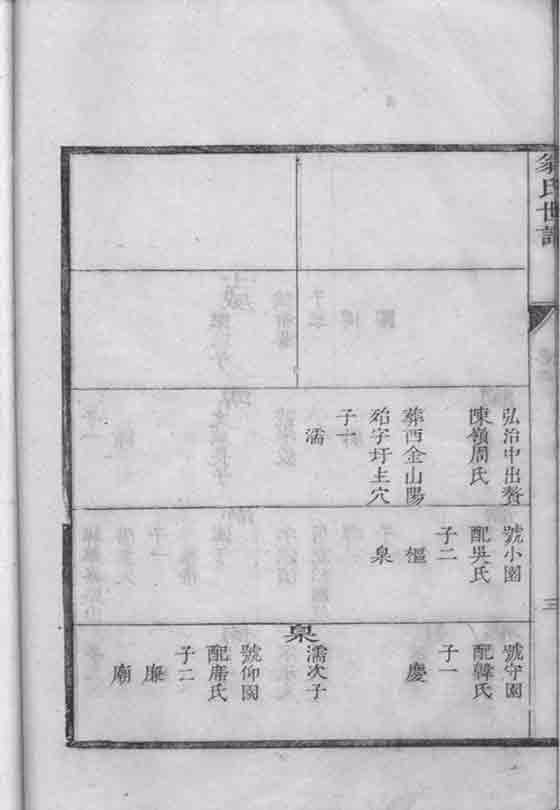 翁氏世譜
三
弘治中出贅
陳嶺周氏
葬西金山陽
殆字圩主穴
子一
濡
號小園
配吳氏
子二
樞
泉
號守園
配韓氏
子一
慶
泉
濡次子
號仰園
配席氏
子二
廉
廟